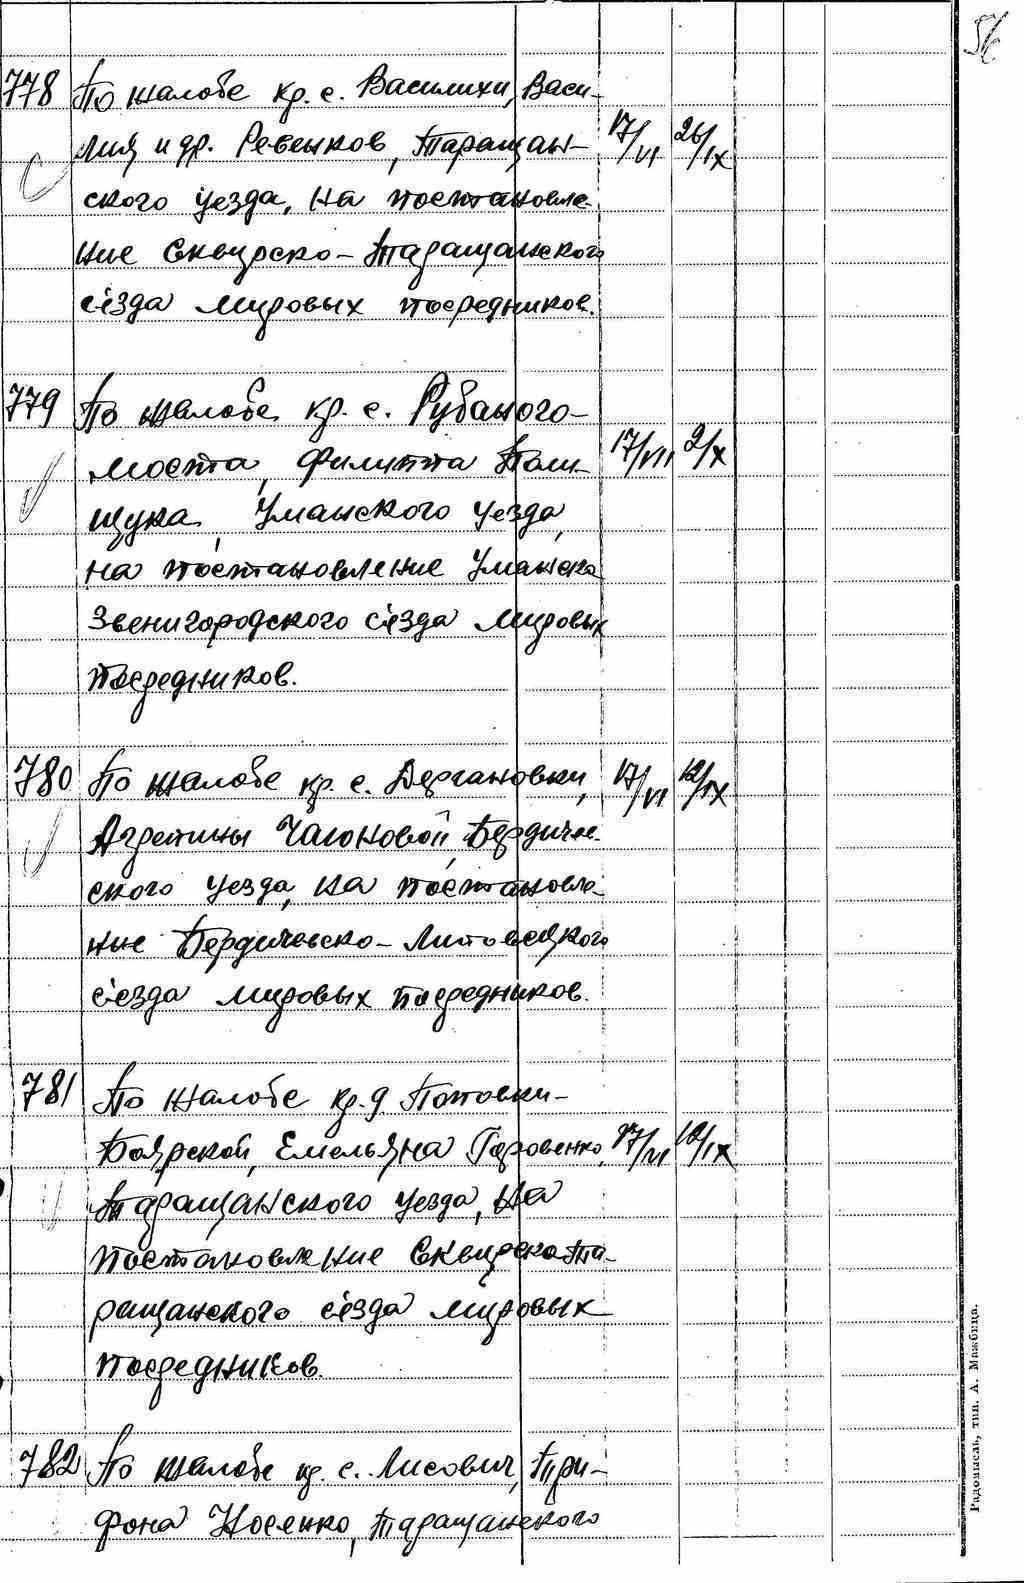 56
778 По жалобе кр. с. Василихи, Васи-
лия и др. Ревенков, Таращан- 17/VI 26/IX
ского уезда, на постановле-
ние Сквирско-Таращанского
с'езда мировых посредников.
779 По жалобе кр. с. Рубаного-
моста, Филиппа Поли- 17/VII 2/X
щука, Уманского уезда,
на постановление Уманско
Звенигородского с'езда мировых
посредников.
780 По жалобе кр. с. Дергановки, 17/VI 12/IX
Агрепины Чаюновой, Бердиче-
ского уезда, на постановле-
ние Бердичевско-Липовецкого
с'езда мировых посредников.
781 По жалобе кр. д. Поповки-
Боярской, Емельяна Горовенко, 17/VI 12/IX
Таращанского уезда, на
постановление Сквирско Та-
ращанского с'езда мировых
посредников.
782 По жалобе кр. с. Лисович, Три-
фона Носенко, Таращанского
Радомысль, тип. А. Мажбица.